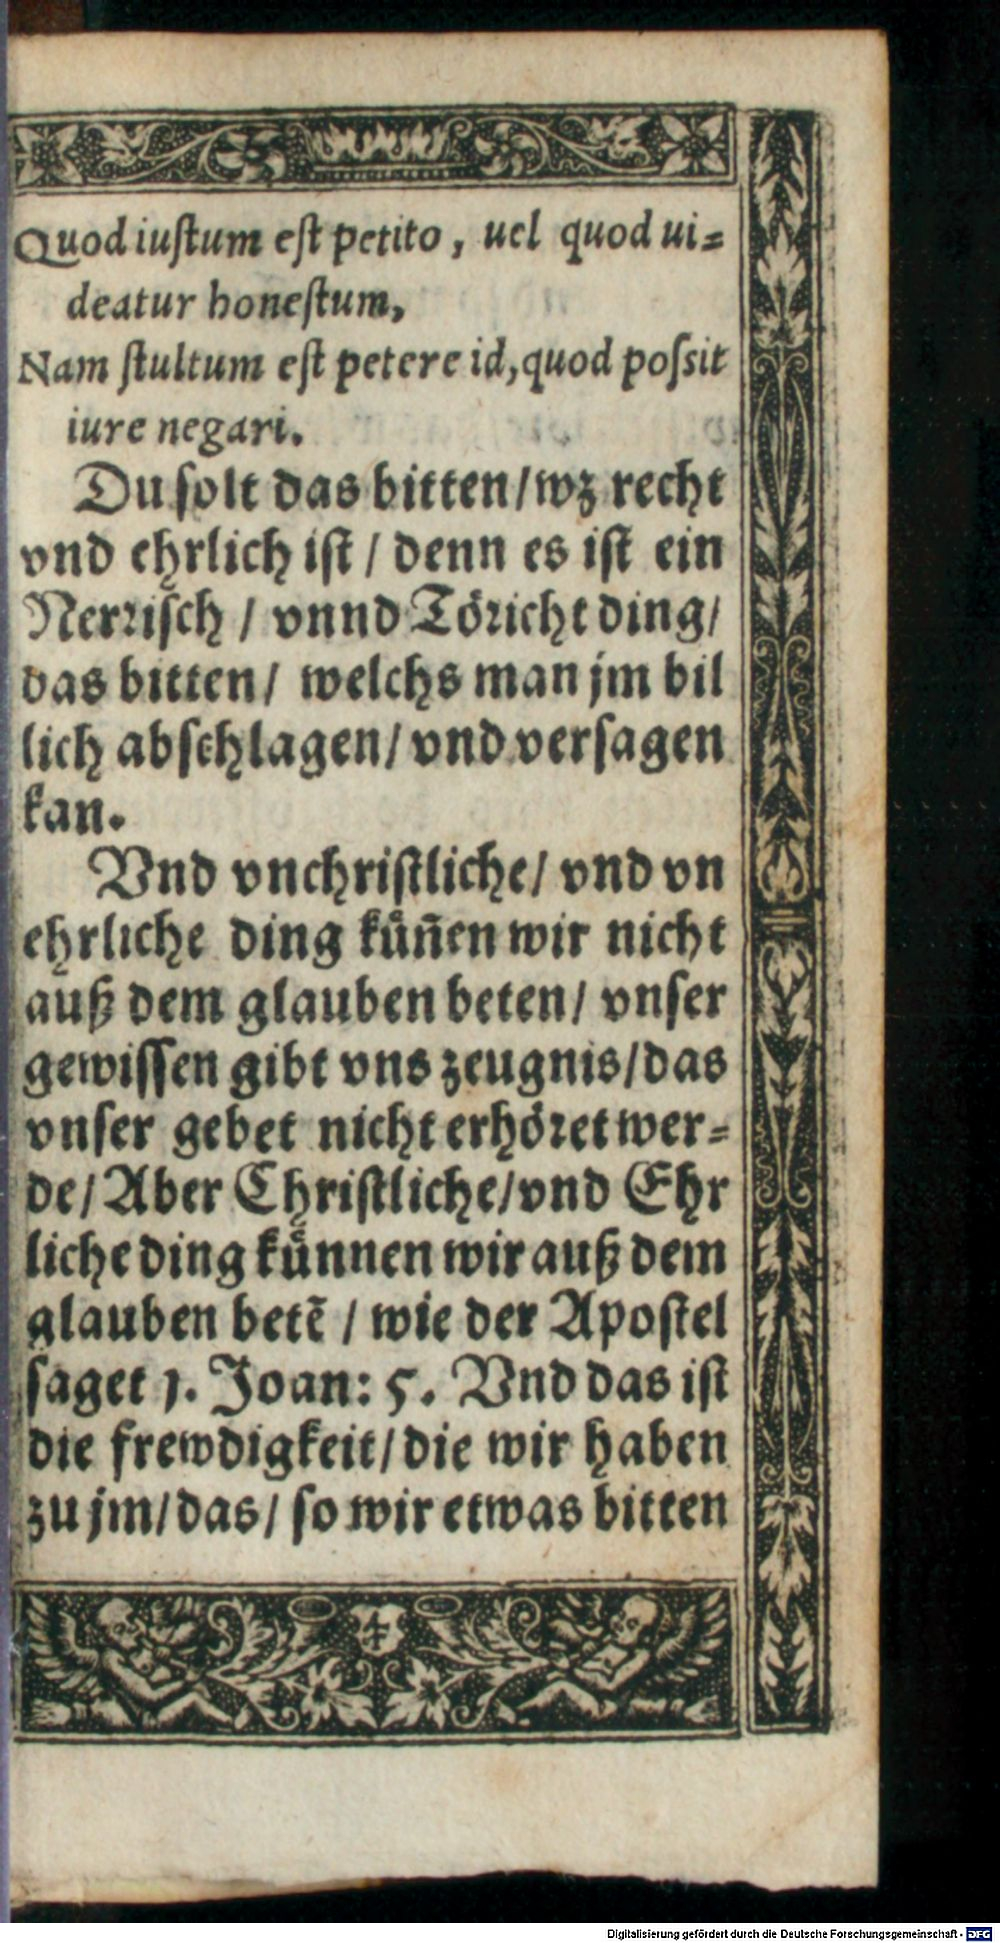 Quod iustum est petito, uel quod ui=
deatur honestum,
Nam stultum est petere id, quod possit
iure negari.
Du solt das bitten/wz recht
vnd ehrlich ist / denn es ist ein
Nerrisch / vnnd Töricht ding/
das bitten/ welchs man jm bil
lich abschlagen/ vnd versagen
kan.
Vnd vnchristliche/ vnd vn
ehrliche ding kuͤn̄en wir nicht
auß dem glauben beten/ vnser
gewissen gibt vns zeugnis/das
vnser gebet nicht erhöret wer=
de/ Aber Christliche/vnd Ehr
liche ding kuͤnnen wir auß dem
glauben betē / wie der Apostel
saget 1. Joan: 5. Vnd das ist
die frewdigkeit/die wir haben
zu jm/das/ so wir etwas bitten
Digitalisierung gefördert durch die Deutsche Forschungsgemeinschaft - DFG